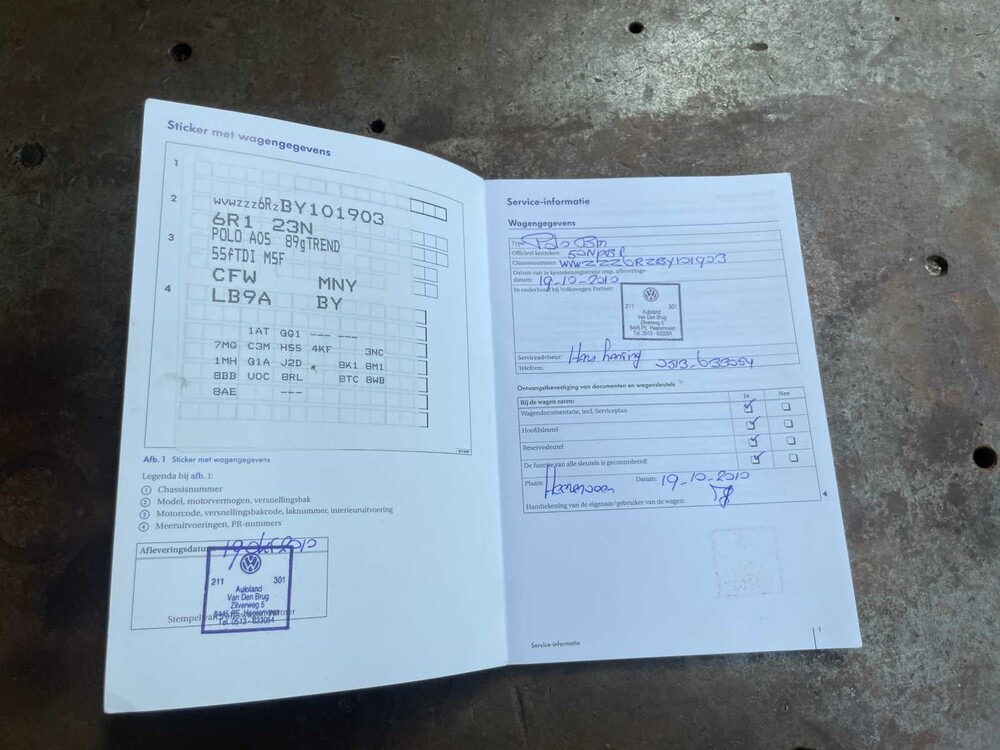 Sticker met wagengegevens
1
2
wvwzzz6RzBY101903
6R1 23N
3
POLO A05 89gTREND
55fTDI M5F
CFW MNY
4
LB9A BY
1AT GG1 --- ---
7MG C3M H5S 4KF 3NC
1MH G1A J2D 8K1 8M1
8BB UOC 8RL 8TC 8WB
8AE ---
Afb. 1 Sticker met wagengegevens
Legenda bij afb. 1:
1 Chassisnummer
2 Model, motorvermogen, versnellingsbak
3 Motorcode, versnellingsbakcode, laknummer, interieuruitvoering
4 Meeruitvoeringen, PR-nummers
Afleveringsdatum
19 okt 2010
211 301
Autoland
Van Den Brug
Zilverweg 5
8445 PE Heerenveen
Tel. 0513 - 633054
Stempel van
Service-informatie
Wagengegevens
Type: Polo
Officieel kenteken: 50NPBR
Chassisnummer: WVWZZZ6RZBY101903
Datum van 1e kentekenregistratie resp. afleverings-
datum: 19-10-2010
In onderhoud bij Volkswagen Partner:
211 301
Autoland
Van Den Brug
Zilverweg 5
8445 PE Heerenveen
Tel. 0513 - 633054
Serviceadviseur: Hans
Telefoon: 0513-633054
Ontvangstbevestiging van documenten en wagensleutels
Bij de wagen zaten: Ja Nee
Wagendocumentatie, incl. Serviceplan
Hoofdsleutel
Reservesleutel
De functie van alle sleutels is gecontroleerd!
Plaats: Heerenveen Datum: 19-10-2010
Handtekening van de eigenaar/gebruiker van de wagen:
Service-informatie
1